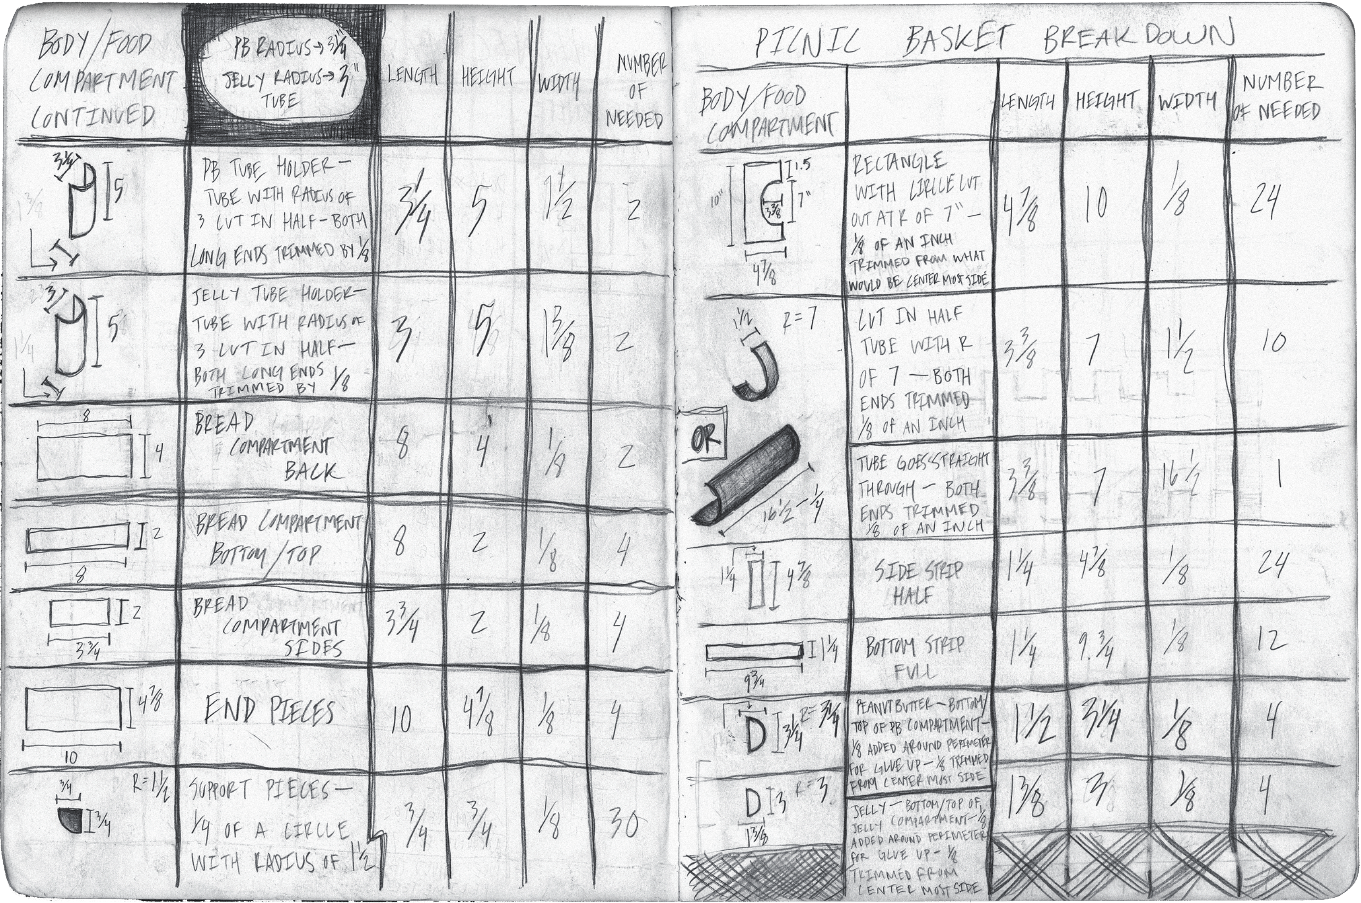 BODY/FOOD
COMPARTMENT
CONTINUED
PB RADIUS→3 1/4"
JELLY RADIUS→3"
TUBE
LENGTH
HEIGHT
WIDTH
NUMBER
OF
NEEDED
3 1/4
5
1 3/8
1
PB TUBE HOLDER—
TUBE WITH RADIUS OF
3 CUT IN HALF—BOTH
LONG ENDS TRIMMED BY 1/8
3 1/4
5
1 1/2
2
3
5
1 1/4
1
JELLY TUBE HOLDER—
TUBE WITH RADIUS OF
3 CUT IN HALF—
BOTH LONG ENDS
TRIMMED BY 1/8
3
5
1 3/8
2
8
4
BREAD
COMPARTMENT
BACK
8
4
1/8
2
2
8
BREAD COMPARTMENT
BOTTOM/TOP
8
2
1/8
4
2
3 3/4
BREAD
COMPARTMENT
SIDES
3 3/4
2
1/8
4
4 7/8
10
END PIECES
10
4 7/8
1/8
4
3/4
R=1 1/2
3/4
SUPPORT PIECES—
1/4 OF A CIRCLE
WITH RADIUS OF 1 1/2
3/4
3/4
1/8
30
PICNIC BASKET BREAKDOWN
BODY/FOOD
COMPARTMENT
LENGTH
HEIGHT
WIDTH
NUMBER
OF NEEDED
10"
1.5
7"
3 3/8
4 7/8
RECTANGLE
WITH CIRCLE CUT
OUT AT R OF 7"—
1/8 OF AN INCH
TRIMMED FROM WHAT
WOULD BE CENTER MOST SIDE
4 7/8
10
1/8
24
1 1/2
R=7
CUT IN HALF
TUBE WITH R
OF 7 — BOTH
ENDS TRIMMED
1/8 OF AN INCH
3 3/8
7
1 1/2
10
OR
16 1/2 — 1/4
TUBE GOES STRAIGHT
THROUGH — BOTH
ENDS TRIMMED
1/8 OF AN INCH
3 3/8
7
16 1/2
1
1 1/4
4 7/8
SIDE STRIP
HALF
1 1/4
4 7/8
1/8
24
1 1/4
9 3/4
BOTTOM STRIP
FULL
1 1/4
9.3/4
1/8
12
R=3 1/4
3 1/4
PEANUT BUTTER — BOTTOM/
TOP OF PB COMPARTMENT—
1/8 ADDED AROUND PERIMETER
FOR GLUE UP — 1/8 TRIMMED
FROM CENTER MOST SIDE
1 1/2
3 1/4
1/8
4
R=3
3
1 3/8
JELLY — BOTTOM/TOP OF
JELLY COMPARTMENT—1/8
ADDED AROUND PERIMETER
FOR GLUE UP — 1/8
TRIMMED FROM
CENTER MOST SIDE
1 3/8
3
1/8
4